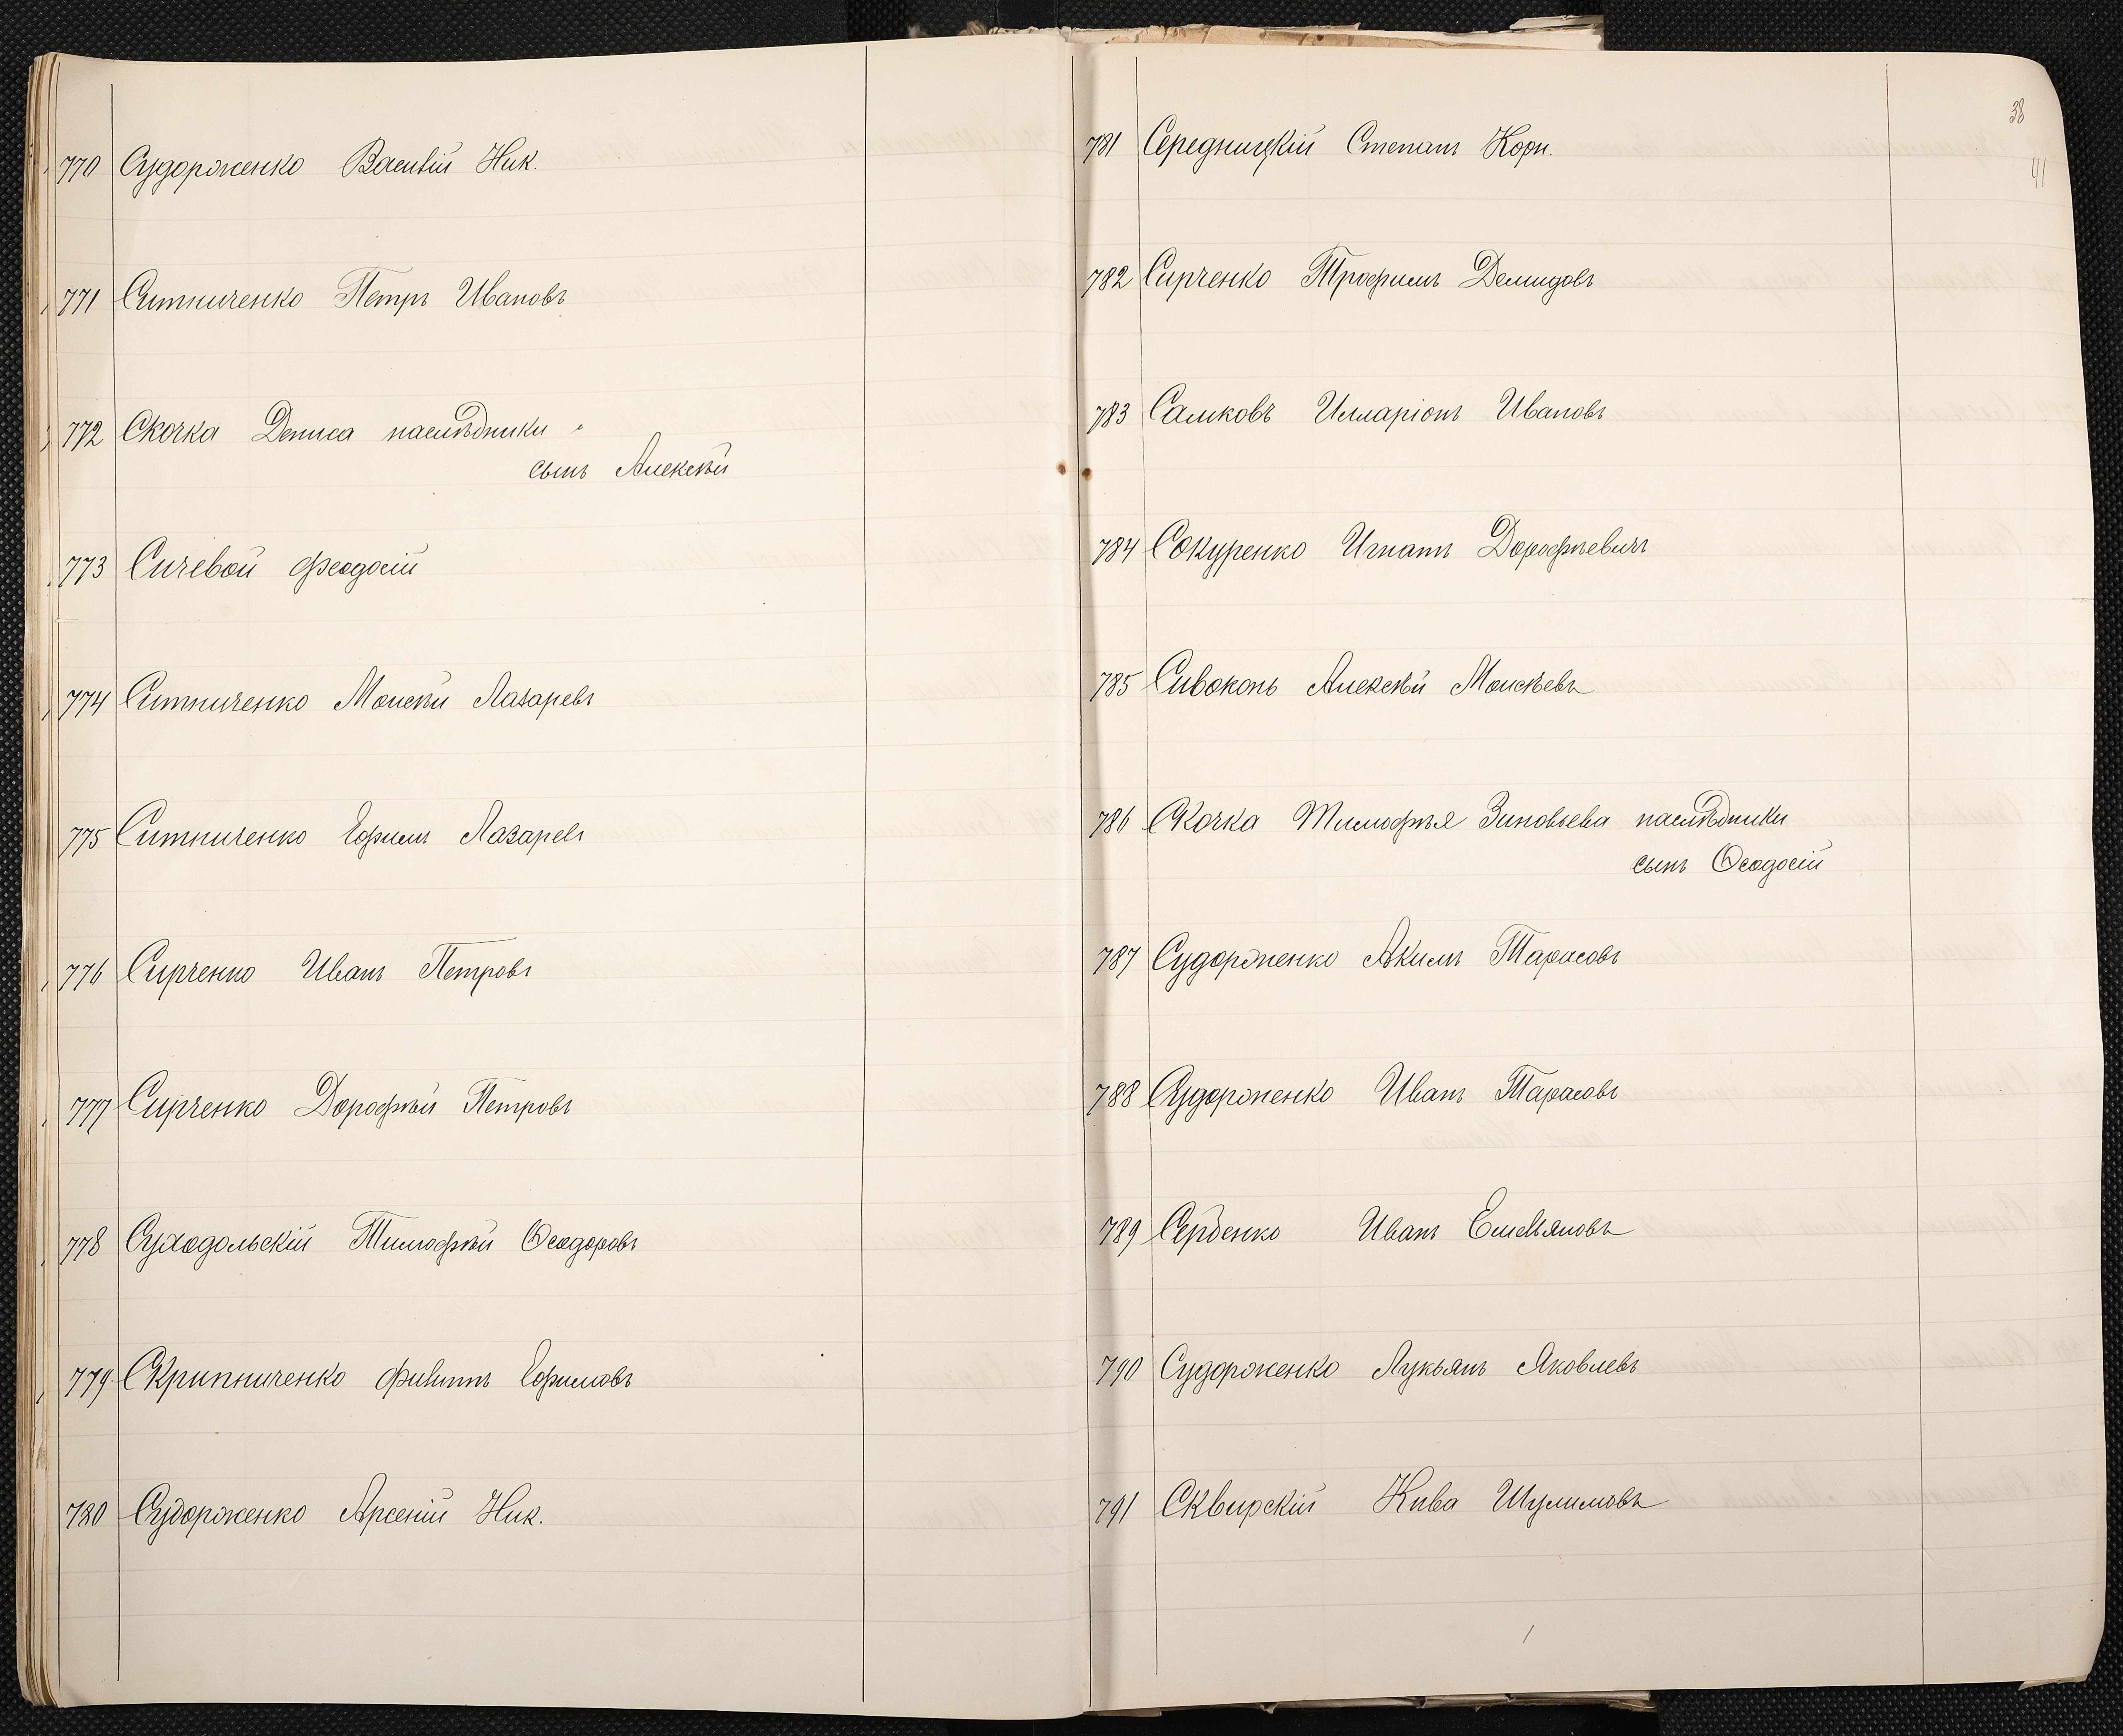 770 Судорженко Василій Ник.
771 Ситниченко Петръ Ивановъ
772 Скочка Дениса наслѣдники
сынъ Алексѣй
773 Сичевой Феодосій
774 Ситниченко Моисѣй Лазаревъ
775 Ситниченко Ефимъ Лазаревъ
776 Сирченко Иванъ Петровъ
777 Сирченко Дорофѣй Петровъ
778 Суходольскій Тимофѣй Ѳеодоровъ
779 Скрипниченко Филиппъ Ефимовъ
780 Судорженко Арсеній Ник.
38
41
781 Середницкій Степанъ Корн.
782 Сирченко Трофимъ Демидовъ
783 Самковъ Илларіонъ Ивановъ
784 Сокуренко Игнатъ Дорофѣевичъ
785 Сивоконь Алексѣй Моисѣевъ
786 Скочка Тимофѣя Зиновьева наслѣдники
сынъ Ѳеодосій
787 Судорженко Акимъ Тарасовъ
788 Судорженко Иванъ Тарасовъ
789 Сербенко Иванъ Емельяновъ
790 Судорженко Лукьянъ Яковлевъ
791 Сквирскій Кива Шулимовъ